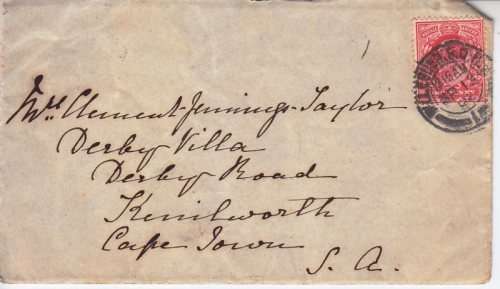 Mrs. Clement Jennings-Taylor
Derby Villa
Derby Road
Kenilworth
Cape Town
S. A.